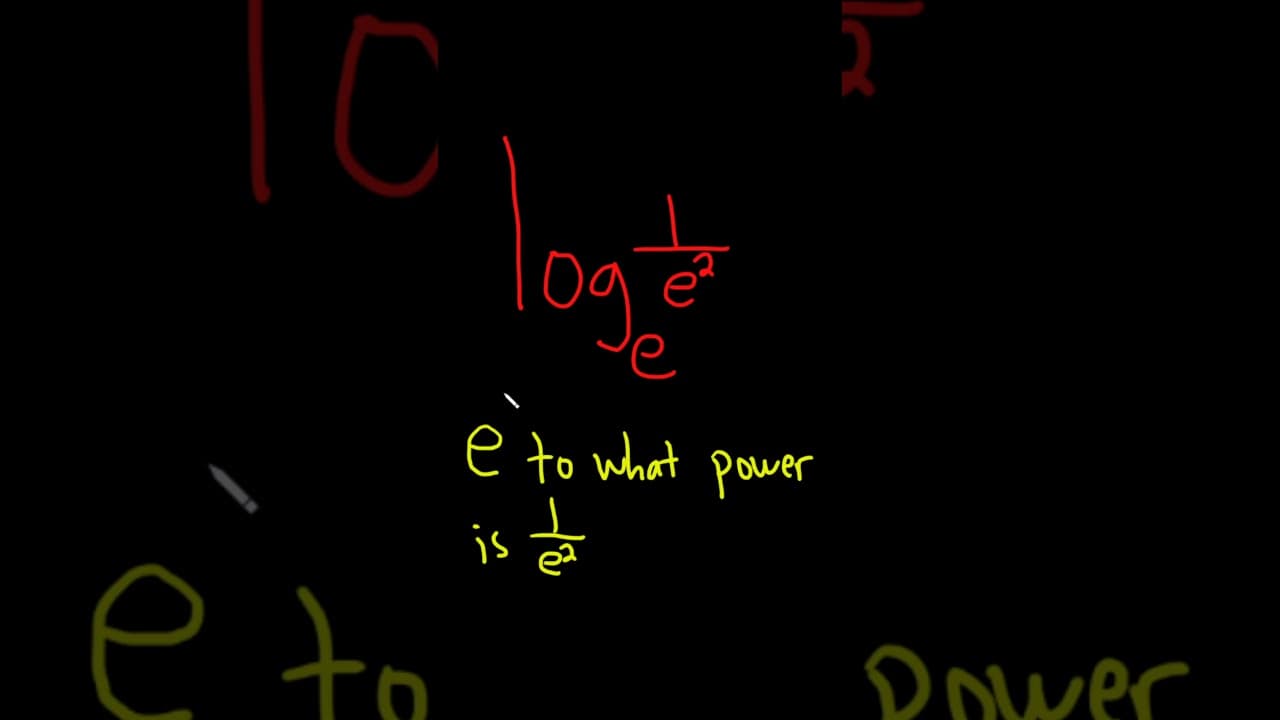 log_e 1/e²
e to what power
is 1/e²